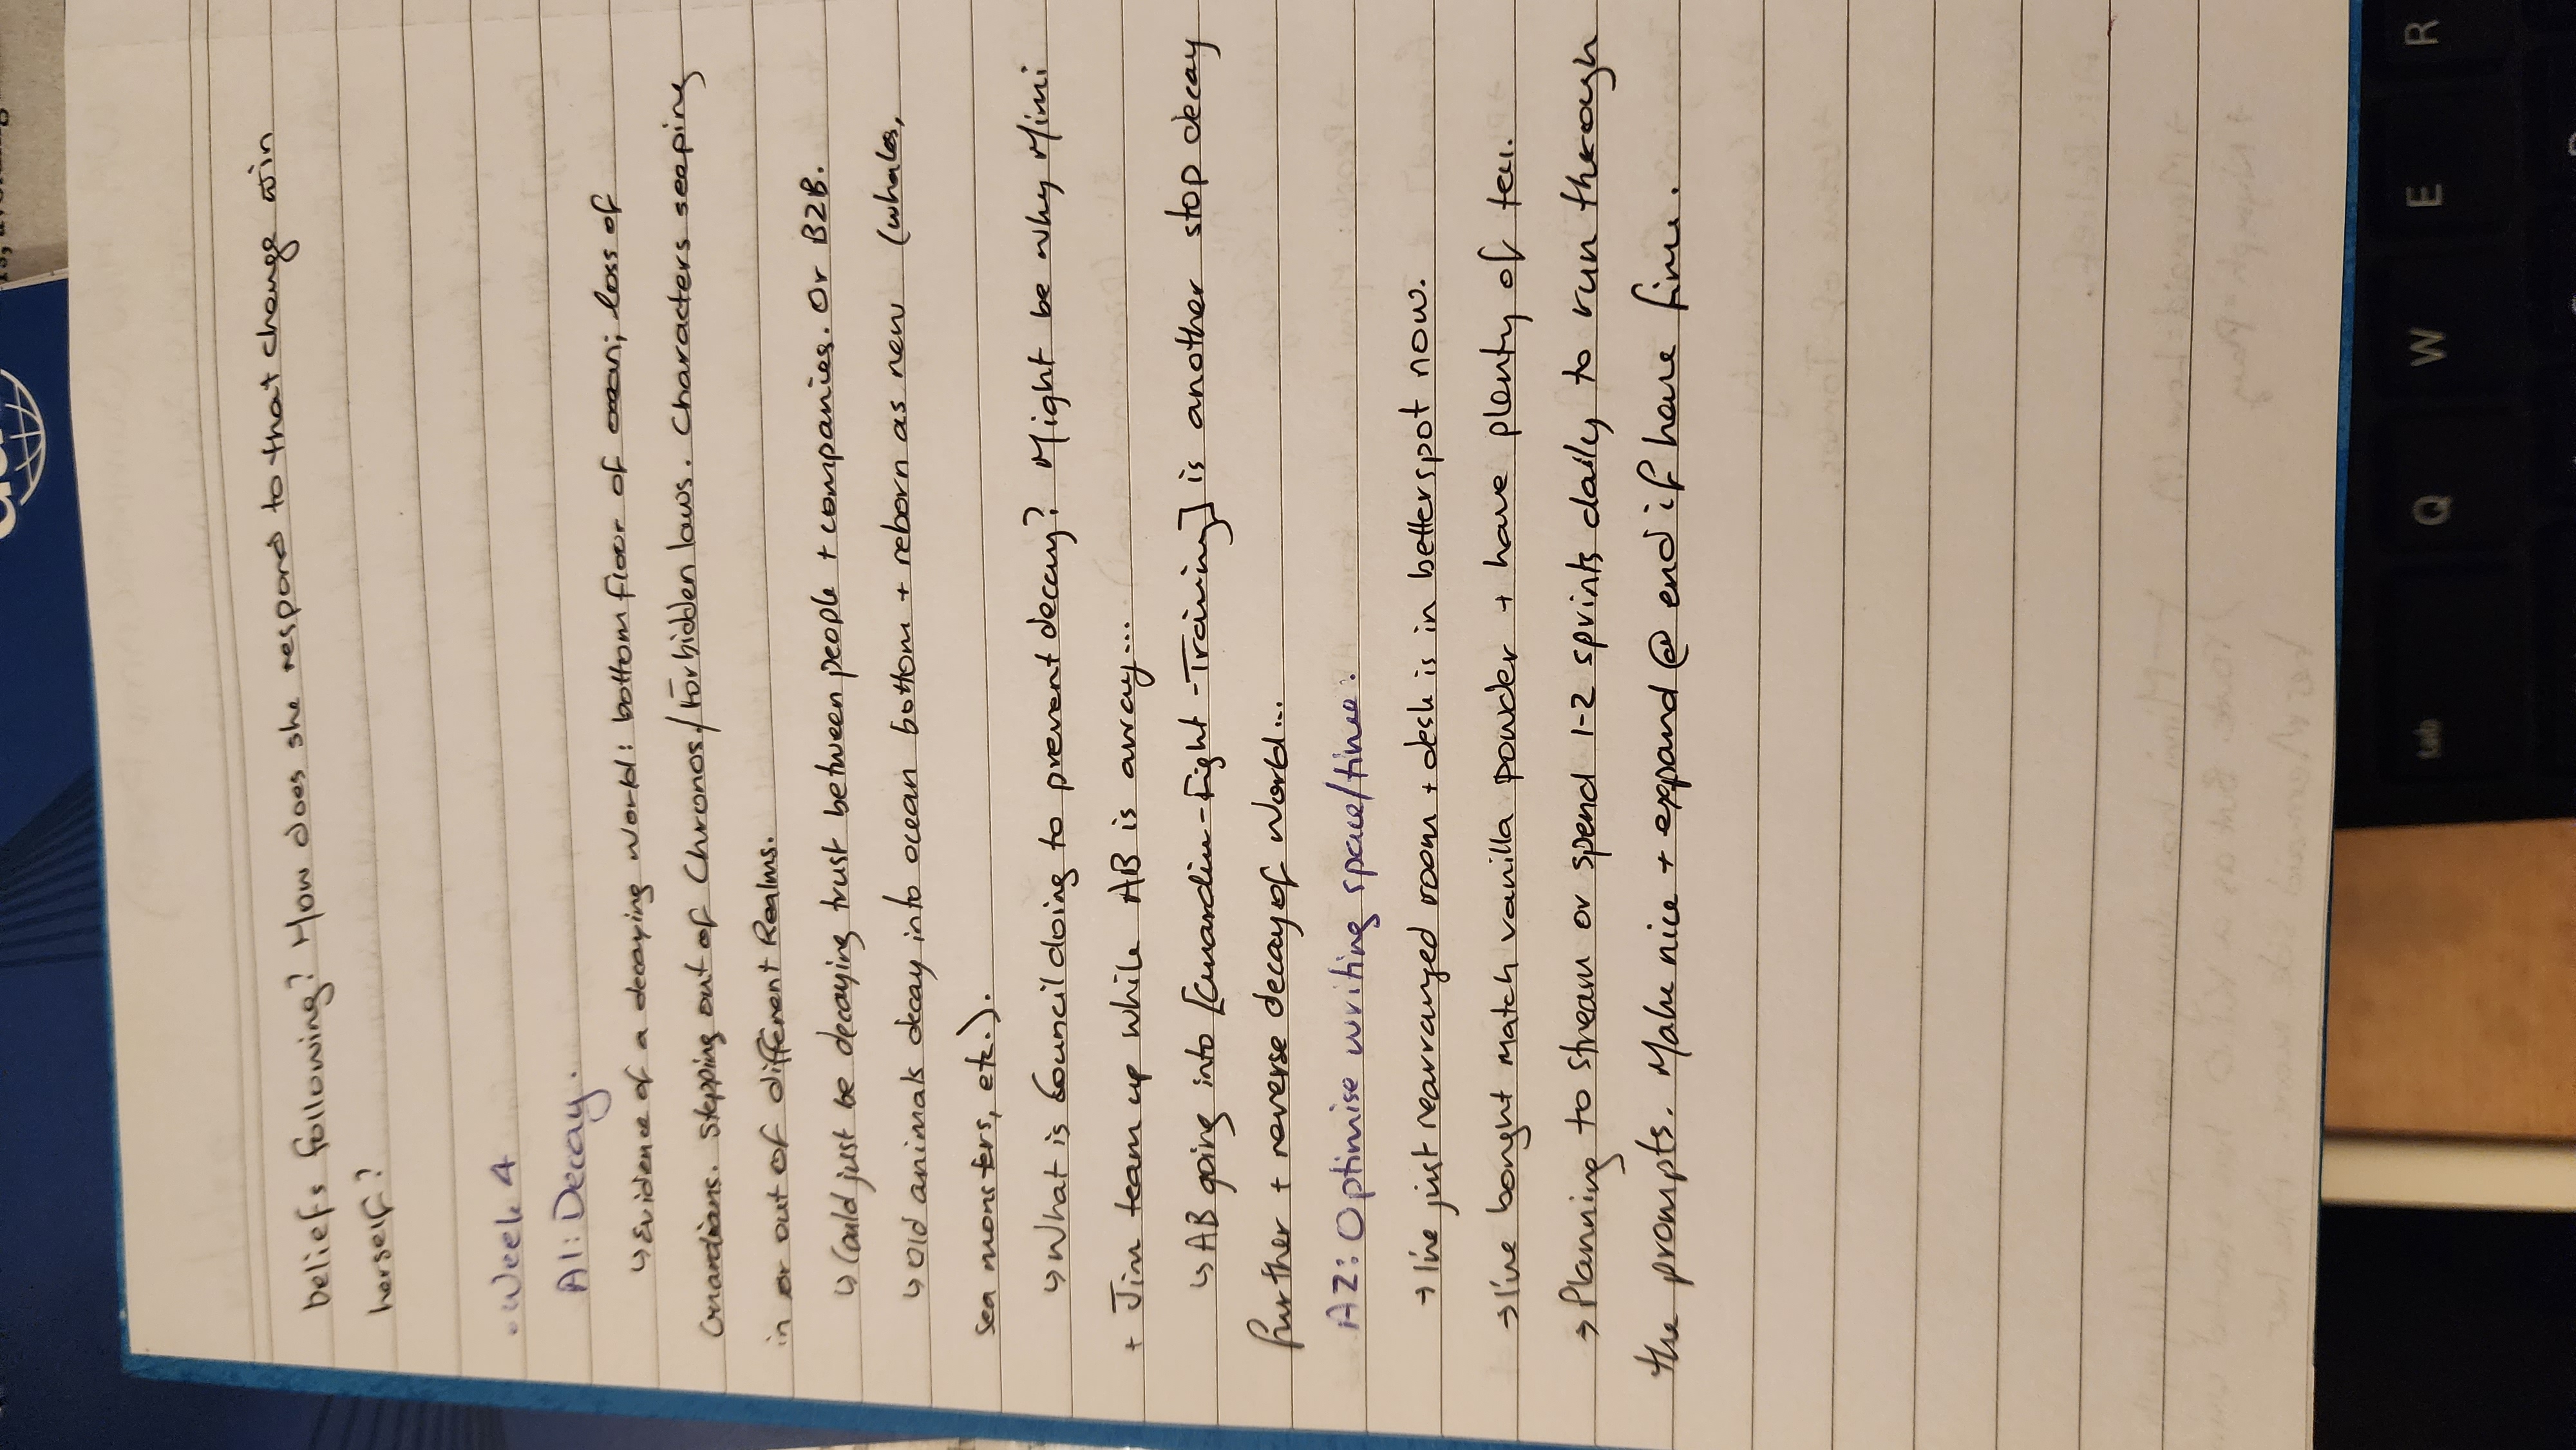 beliefs following? How does she respond to that change win
herself?
• Week 4
A1: Decay.
↳ Evidence of a decaying world: bottom floor of ocean; loss of
Guardians. Stepping out of Chronos/Forbidden laws. Characters seeping
in or out of different Realms.
↳ Could just be decaying trust between people + companies. Or B2B.
↳ Old animals decay into ocean bottom + reborn as new (whales,
sea monsters, etc.).
↳ What is Council doing to prevent decay? Might be why Mimi
+ Jim team up while AB is away...
↳ AB going into [Guardian-Fight-Training] is another stop decay
further + reverse decay of world...
A2: Optimise writing space/time.
→ I've just rearranged room + desk is in better spot now.
→ I've bought match vanilla powder + have plenty of tea.
→ Planning to stream or spend 1-2 sprints daily to run through
the prompts. Make nice + expand @ end if have time.
Tab
Q
W
E
R